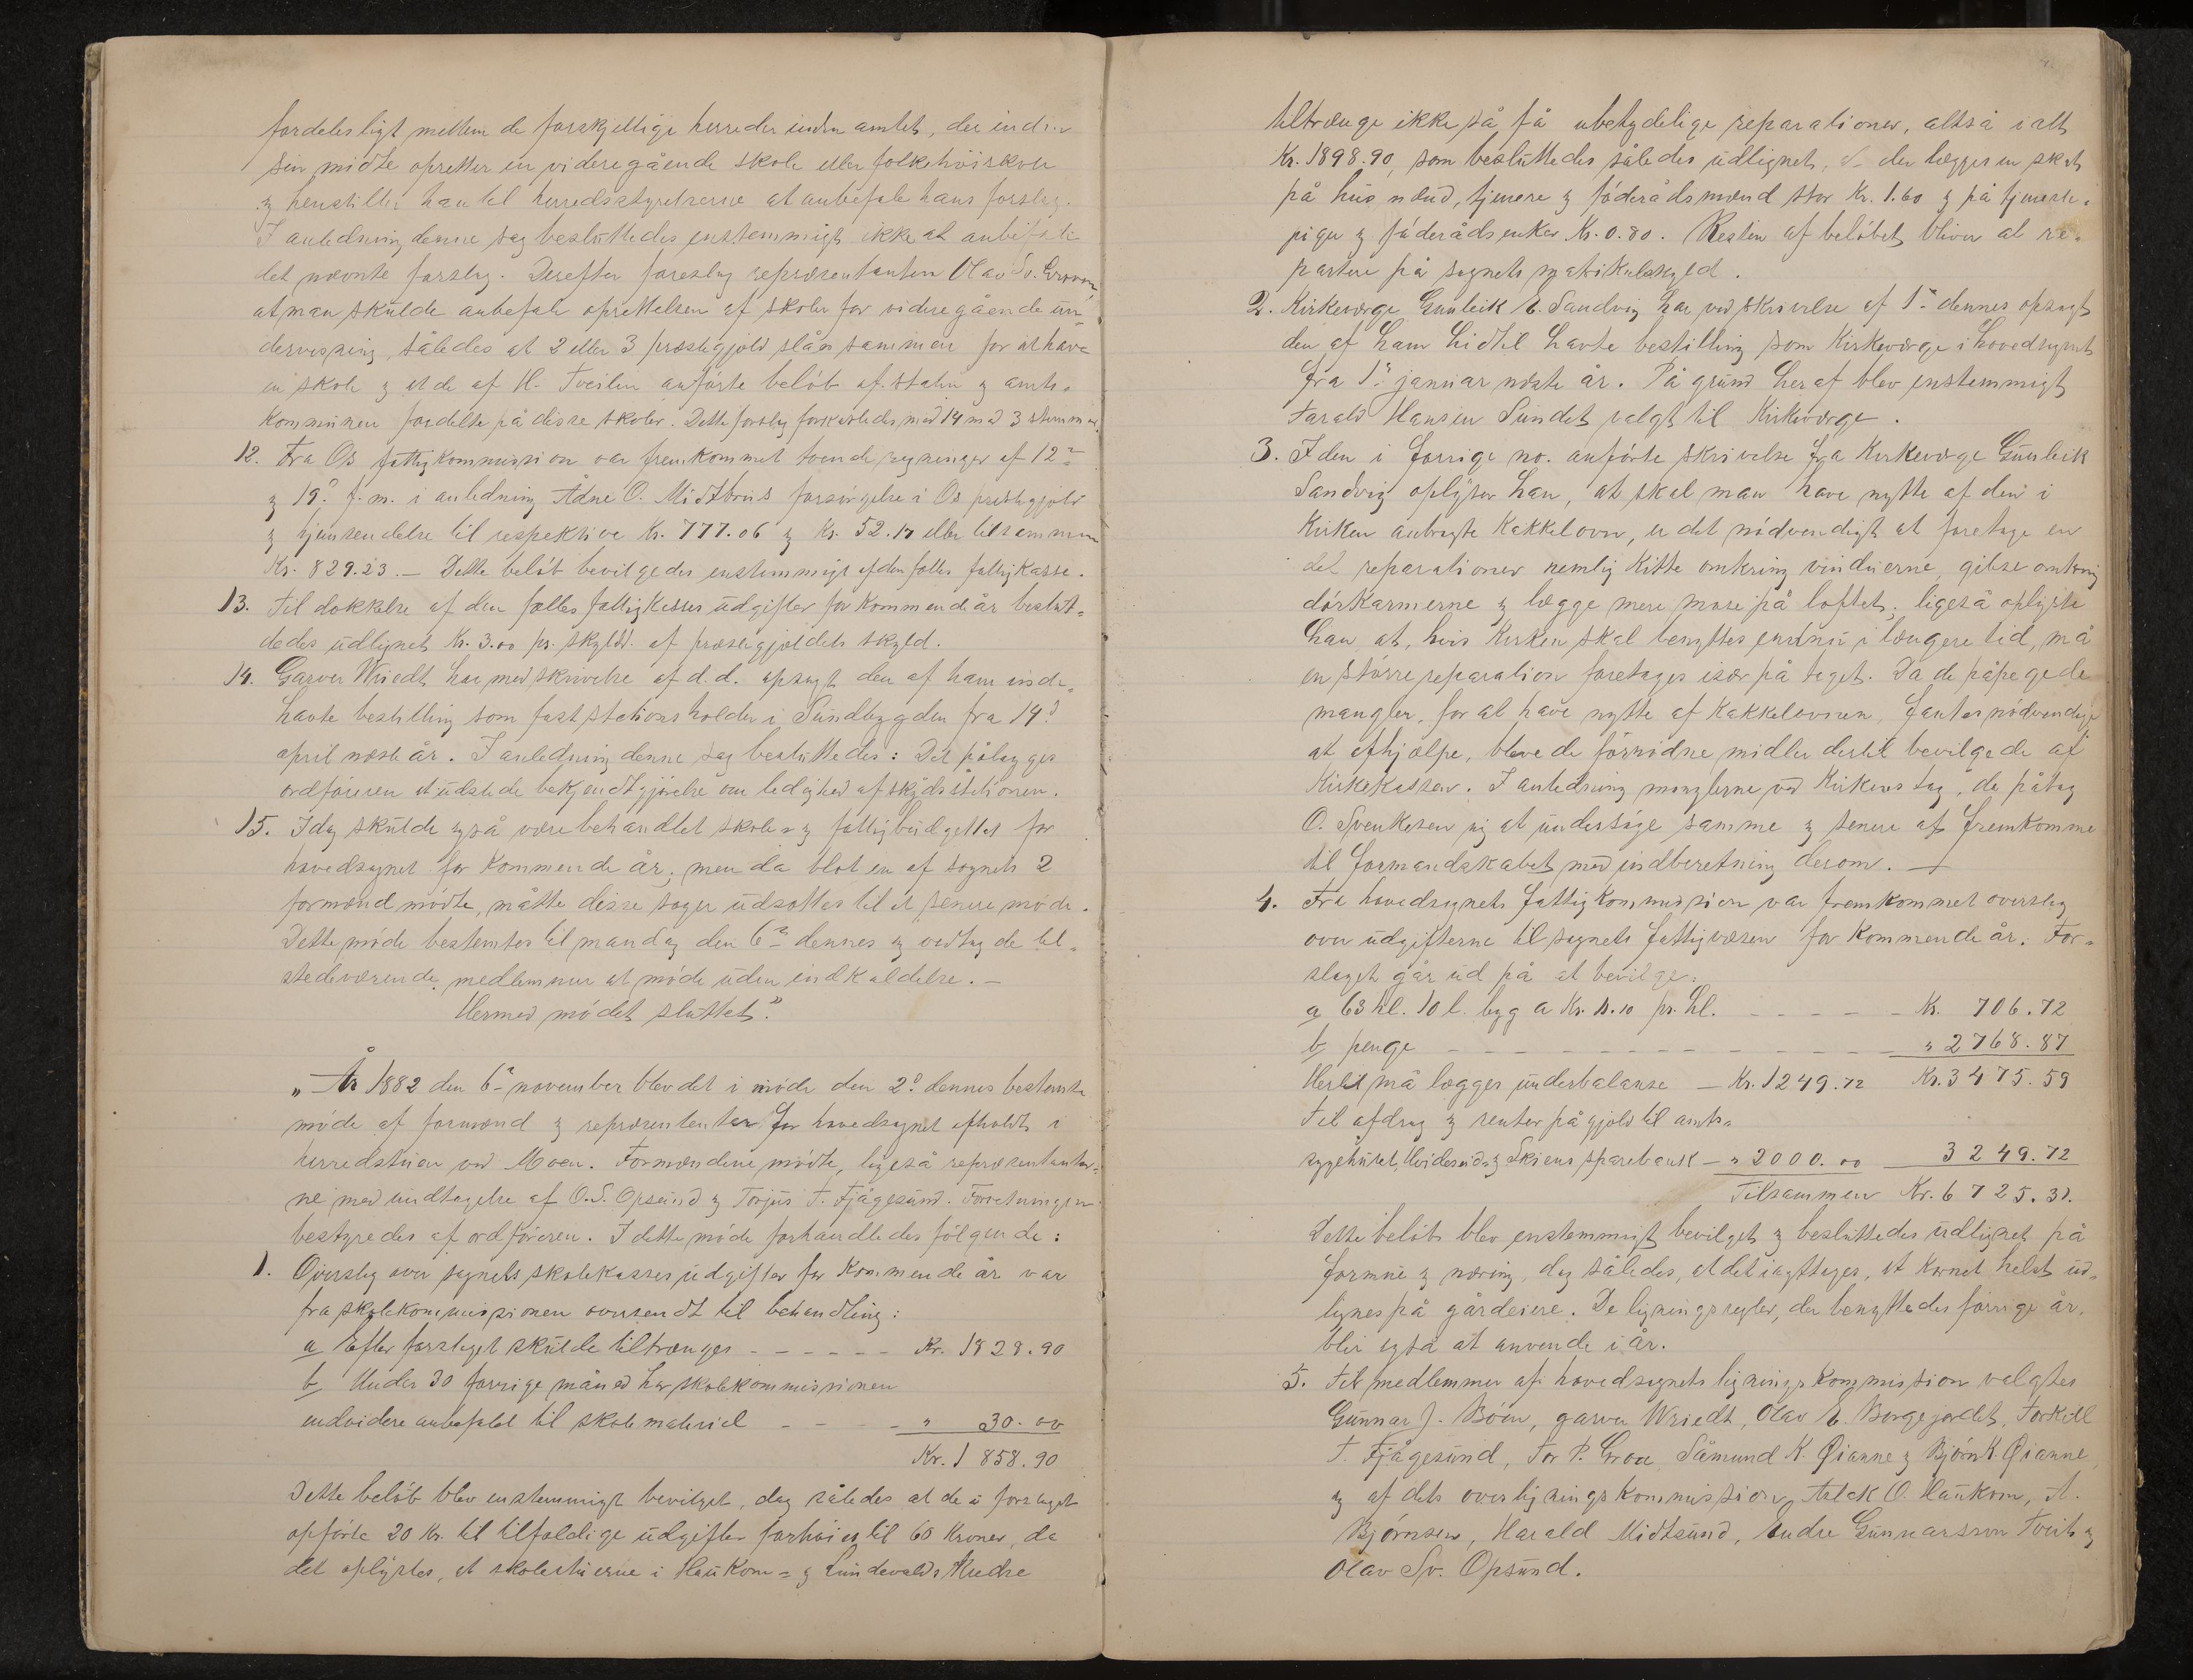 fordelesligt mellem de forskjellige herreder inden amtet, der inden
sin midte opretter en videregående skole eller folkehöiskole
og henstiller han til herredsstyrelserne at anbefale hans forslag.
I anledning denne sag besluttedes enstemmigt ikke at anbefale
det nævnte forslag. Derefter foreslog repræsentanten Olav Sv.
at man skulde anbefale oprettelsen af skoler for videregående un-
dervisning, således at 2 eller 3 præstegjeld slåes sammen for at have
en skole og at de af H. Tveiten anførte beløb af staten og amts-
kommunen fordeltes på disse skoler. Dette forslag forkastedes med 14 mod 3 stemmer.
12. Fra Os fattigkommission var fremkommet tvende regninger af 12te
og 19de f. m. i anledning Ådne O. Midtbøs forsørgelse i Os præstegjeld
og hjemsendelse til respektive Kr. 777.06 og Kr. 52.17 eller tilsammen
Kr. 829.23. — Dette beløb bevilgedes enstemmigt af den fælles fattigkasse.
13. Til dækkelse af den fælles fattigkasses udgifter for kommende år beslut-
tedes udlignet Kr. 3.00 pr. skyldd. af præstegjeldets skyld.
14. Garver Wriedt har med skrivelse af d.d. opsagt den af ham inde-
havte bestilling som fast stationsholder i Sundbygden fra 14de
april næste år. I anledning denne sag besluttedes: Det pålægges
ordføreren at udstede bekjendtgjørelse om ledighed af skydsstationen.
15. Idag skulde også være behandlet skole- og fattigbudgettet for
hovedsognet for kommende år, men da blot en af sognets 2
formænd mødte, måtte disse sager udsættes til et senere møde.
Dette møde bestemtes til mandag den 6te dennes og vedtog de til-
stedeværende medlemmer at møde uden indkaldelse. —
Hermed mødet sluttet."

„År 1882 den 6te november blev det i møde den 2den dennes bestemte
møde af formænd og repræsentanter for hovedsognet afholdt i
herredstuen ved Moen. Formændene mødte, ligeså repræsentanter-
ne med undtagelse af O. S. Opsund og Torjus T. Fjågesund. Forretningen
bestyredes af ordføreren. I dette møde forhandledes følgende:
1. Overslag over sognets skolekasses udgifter for kommende år var
fra skolekommissionen oversendt til behandling:
a Efter forslaget skulde tiltrænges - - - - - - Kr. 1828.90
b Under 30 forrige måned har skolekommissionen
endvidere anbefalet til skolemateriel - - - - " 30.00
Kr. 1 858.90
Dette beløb blev enstemmigt bevilget, dog således at de i forslaget
opførte 20 Kr. til tilfældige udgifter forhøies til 60 Kroner, da
det oplystes, at skolestuerne i Haukom- og Lundevalds Kredse
tiltrænge ikke så få ubetydelige reparationer, altså ialt
Kr. 1898.90, som besluttedes således udlignet, der lægges en skat
på husmænd, tjenere og føderådsmænd stor Kr. 1.60 og på tjeneste-
piger og føderådsenker Kr. 0.80. Resten af beløbet bliver at re-
partere på sognets matrikulskyld.
2. Kirkeværge Gunleik E. Sandvig har ved skrivelse af 1ste dennes opsagt
den af ham hidtil havte bestilling som Kirkeværge i hovedsognet
fra 1ste januar næste år. På grund heraf blev enstemmigt
Tarald Hansen Sundet valgt til Kirkeværge.
3. I den i forrige no. anførte skrivelse fra Kirkeværge Gunleik
Sandvig oplyser han, at skal man have nytte af den i
Kirken anbragte Kakkelovn, er det nødvendigt at foretage en
del reparationer nemlig Kitte omkring vinduerne, gibse omkring
dørkarmerne og lægge mere mose på loftet; ligeså oplyste
han at, hvis Kirken skal benyttes endnu i længere tid, må
en større reparation foretages især på taget. Da de påpegede
mangler, for at have nytte af Kakkelovnen, fantes nødvendige
at afhjælpe, blev de fornødne midler dertil bevilgede af
Kirkekassen. I anledning manglerne ved Kirkens tag, de påtog
O. Svenkesen sig at undersøge samme og senere at fremkomme
til formandskabet med indberetning derom. —
4. Fra hovedsognets fattigkommission var fremkommet overslag
over udgifterne til sognets fattigvæsen for kommende år. For-
slaget går ud på at bevilge:
a 63 hl. 10 l. byg a Kr. 11.10 pr. hl. - - - - - Kr. 706.72
b penge - - - - - - - - - - - - " 2768.87
Hertil må lægges underbalanse — Kr. 1249.72 Kr. 3475.59
Til afdrag og renter på gjeld til amts-
sygehuset, Hvideseids og Skiens sparebank — " 2000.00 3249.72
Tilsammen Kr. 6725.31.
Dette beløb blev enstemmigt bevilget og besluttedes udlignet på
formue og næring, dog således, at det iagttages, at Kornet helst ud-
lignes på gårdeiere. De ligningsregler, der benyttedes forrige år,
blir også at anvende i år.
5. Til medlemmer af hovedsognets ligningskommission valgtes
Gunnar J. Böen, garver Wriedt, Olav E. Borgejordet, Torkild
T. Fjågesund, Tor P. Groa, Såmund K. Øianne og Bjørn K. Øianne,
og af dets overligningskommission Aslak O. Haukom, A.
Bjørnsen, Harald Midtsund, Endre Gunnarsson Tveit og
Olav Sv. Opsund.